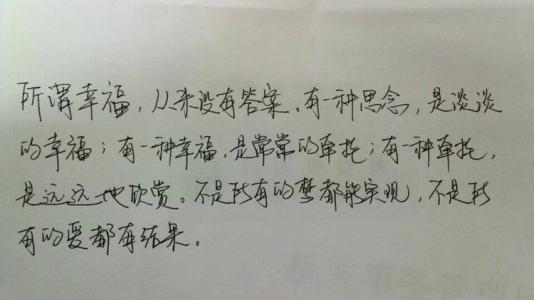 所谓幸福，从来没有答案。有一种思念，是淡淡
的幸福；有一种幸福，是常常的牵挂；有一种牵挂，
是远远地欣赏。不是所有的梦都能实现，不是所
有的爱都有结果。